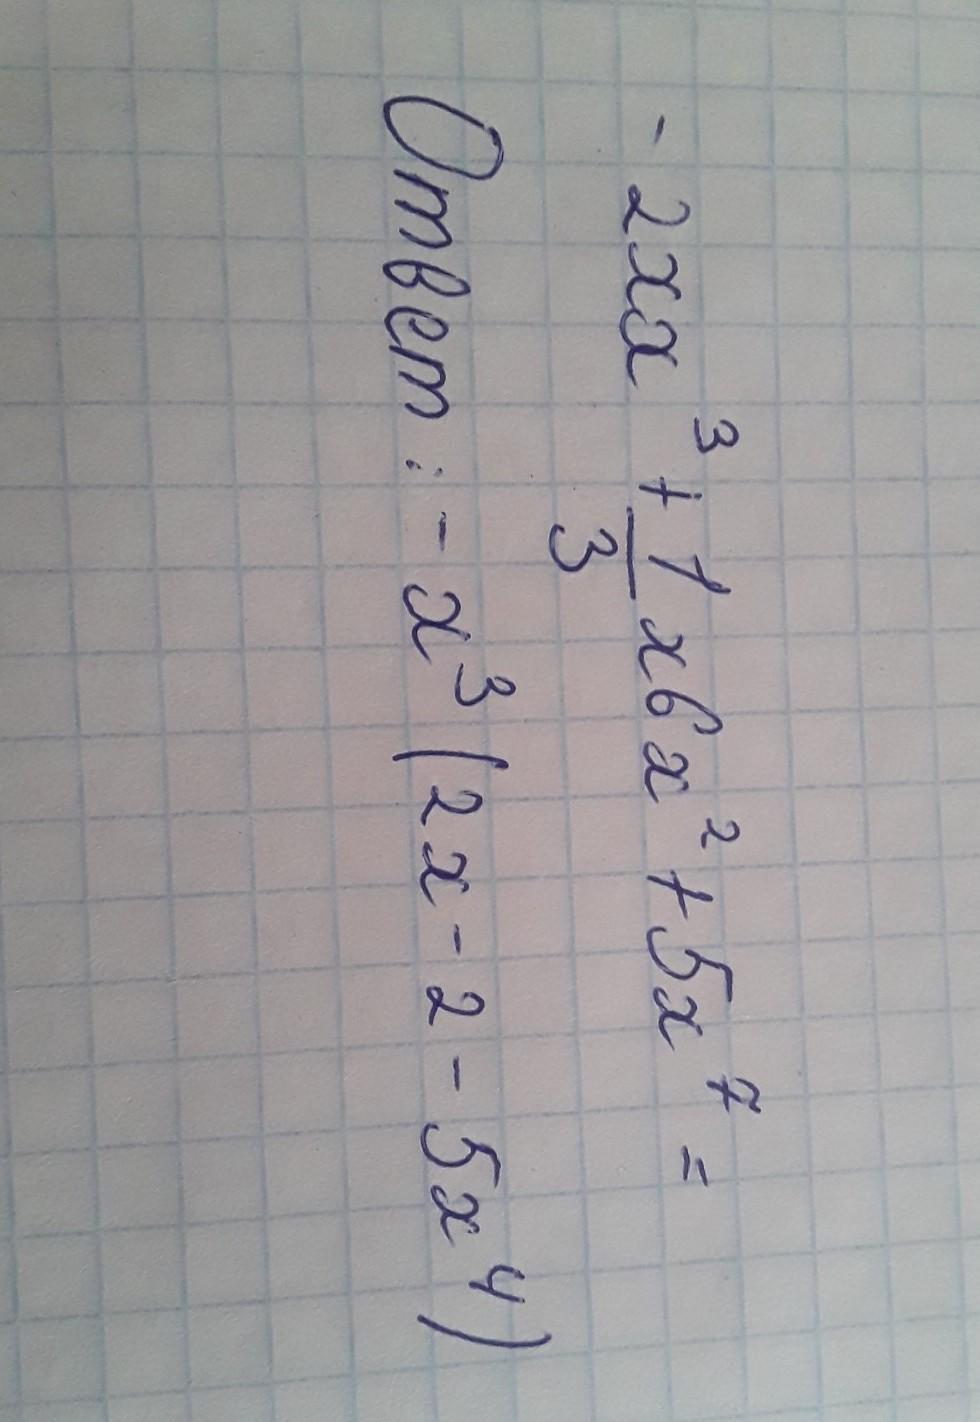 - 2xx³ + 1/3 x6x² + 5x⁷ =
Ответ : - x³ (2x - 2 - 5x⁴)